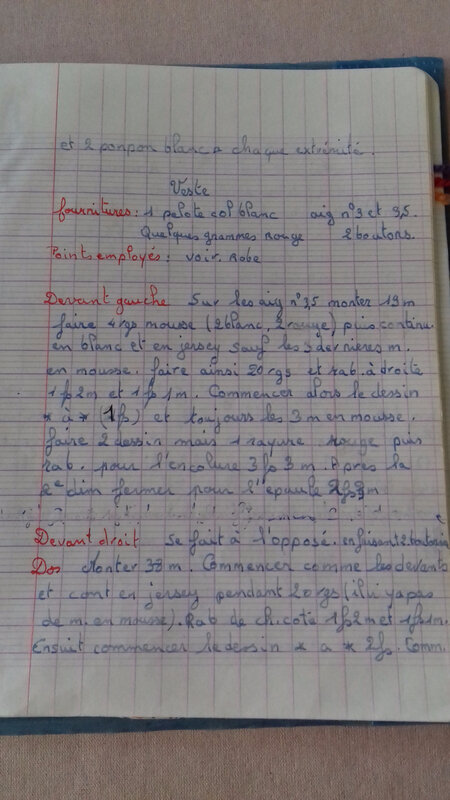 et 2 ponpon blanc a chaque extrémité.
Veste
fournitures: 1 pelote col blanc aig n°3 et 3,5.
Quelques grammes rouge 2 boutons.
Points employés: voir robe
Devant gauche Sur les aig n°3,5 monter 19 m
faire 4 rgs mousse (2 blanc, 2 rouge) puis continue.
en blanc et en jersey sauf les 3 dernières m.
en mousse. faire ainsi 20 rgs et rab. à droite
1 fs 2 m et 1 fs 1 m. Commencer alors le dessin
* à * (1 fs) et toujours les 3 m en mousse.
faire 2 dessin mais 1 rayure rouge puis
rab. pour l'encolure 3 fs 3 m. Après la
2e dim fermer pour l'épaule 2 fs m
Devant droit se fait à l'opposé. en faisant 2 boutonn
Dos Monter 38 m. Commencer comme les devants
et cont en jersey pendant 20 rgs (il n'y a pas
de m. en mousse). Rab de ch. coté 1 fs 2 m et 1 fs 1 m.
Ensuit commencer le dessin * a * 2 fs. Comm.